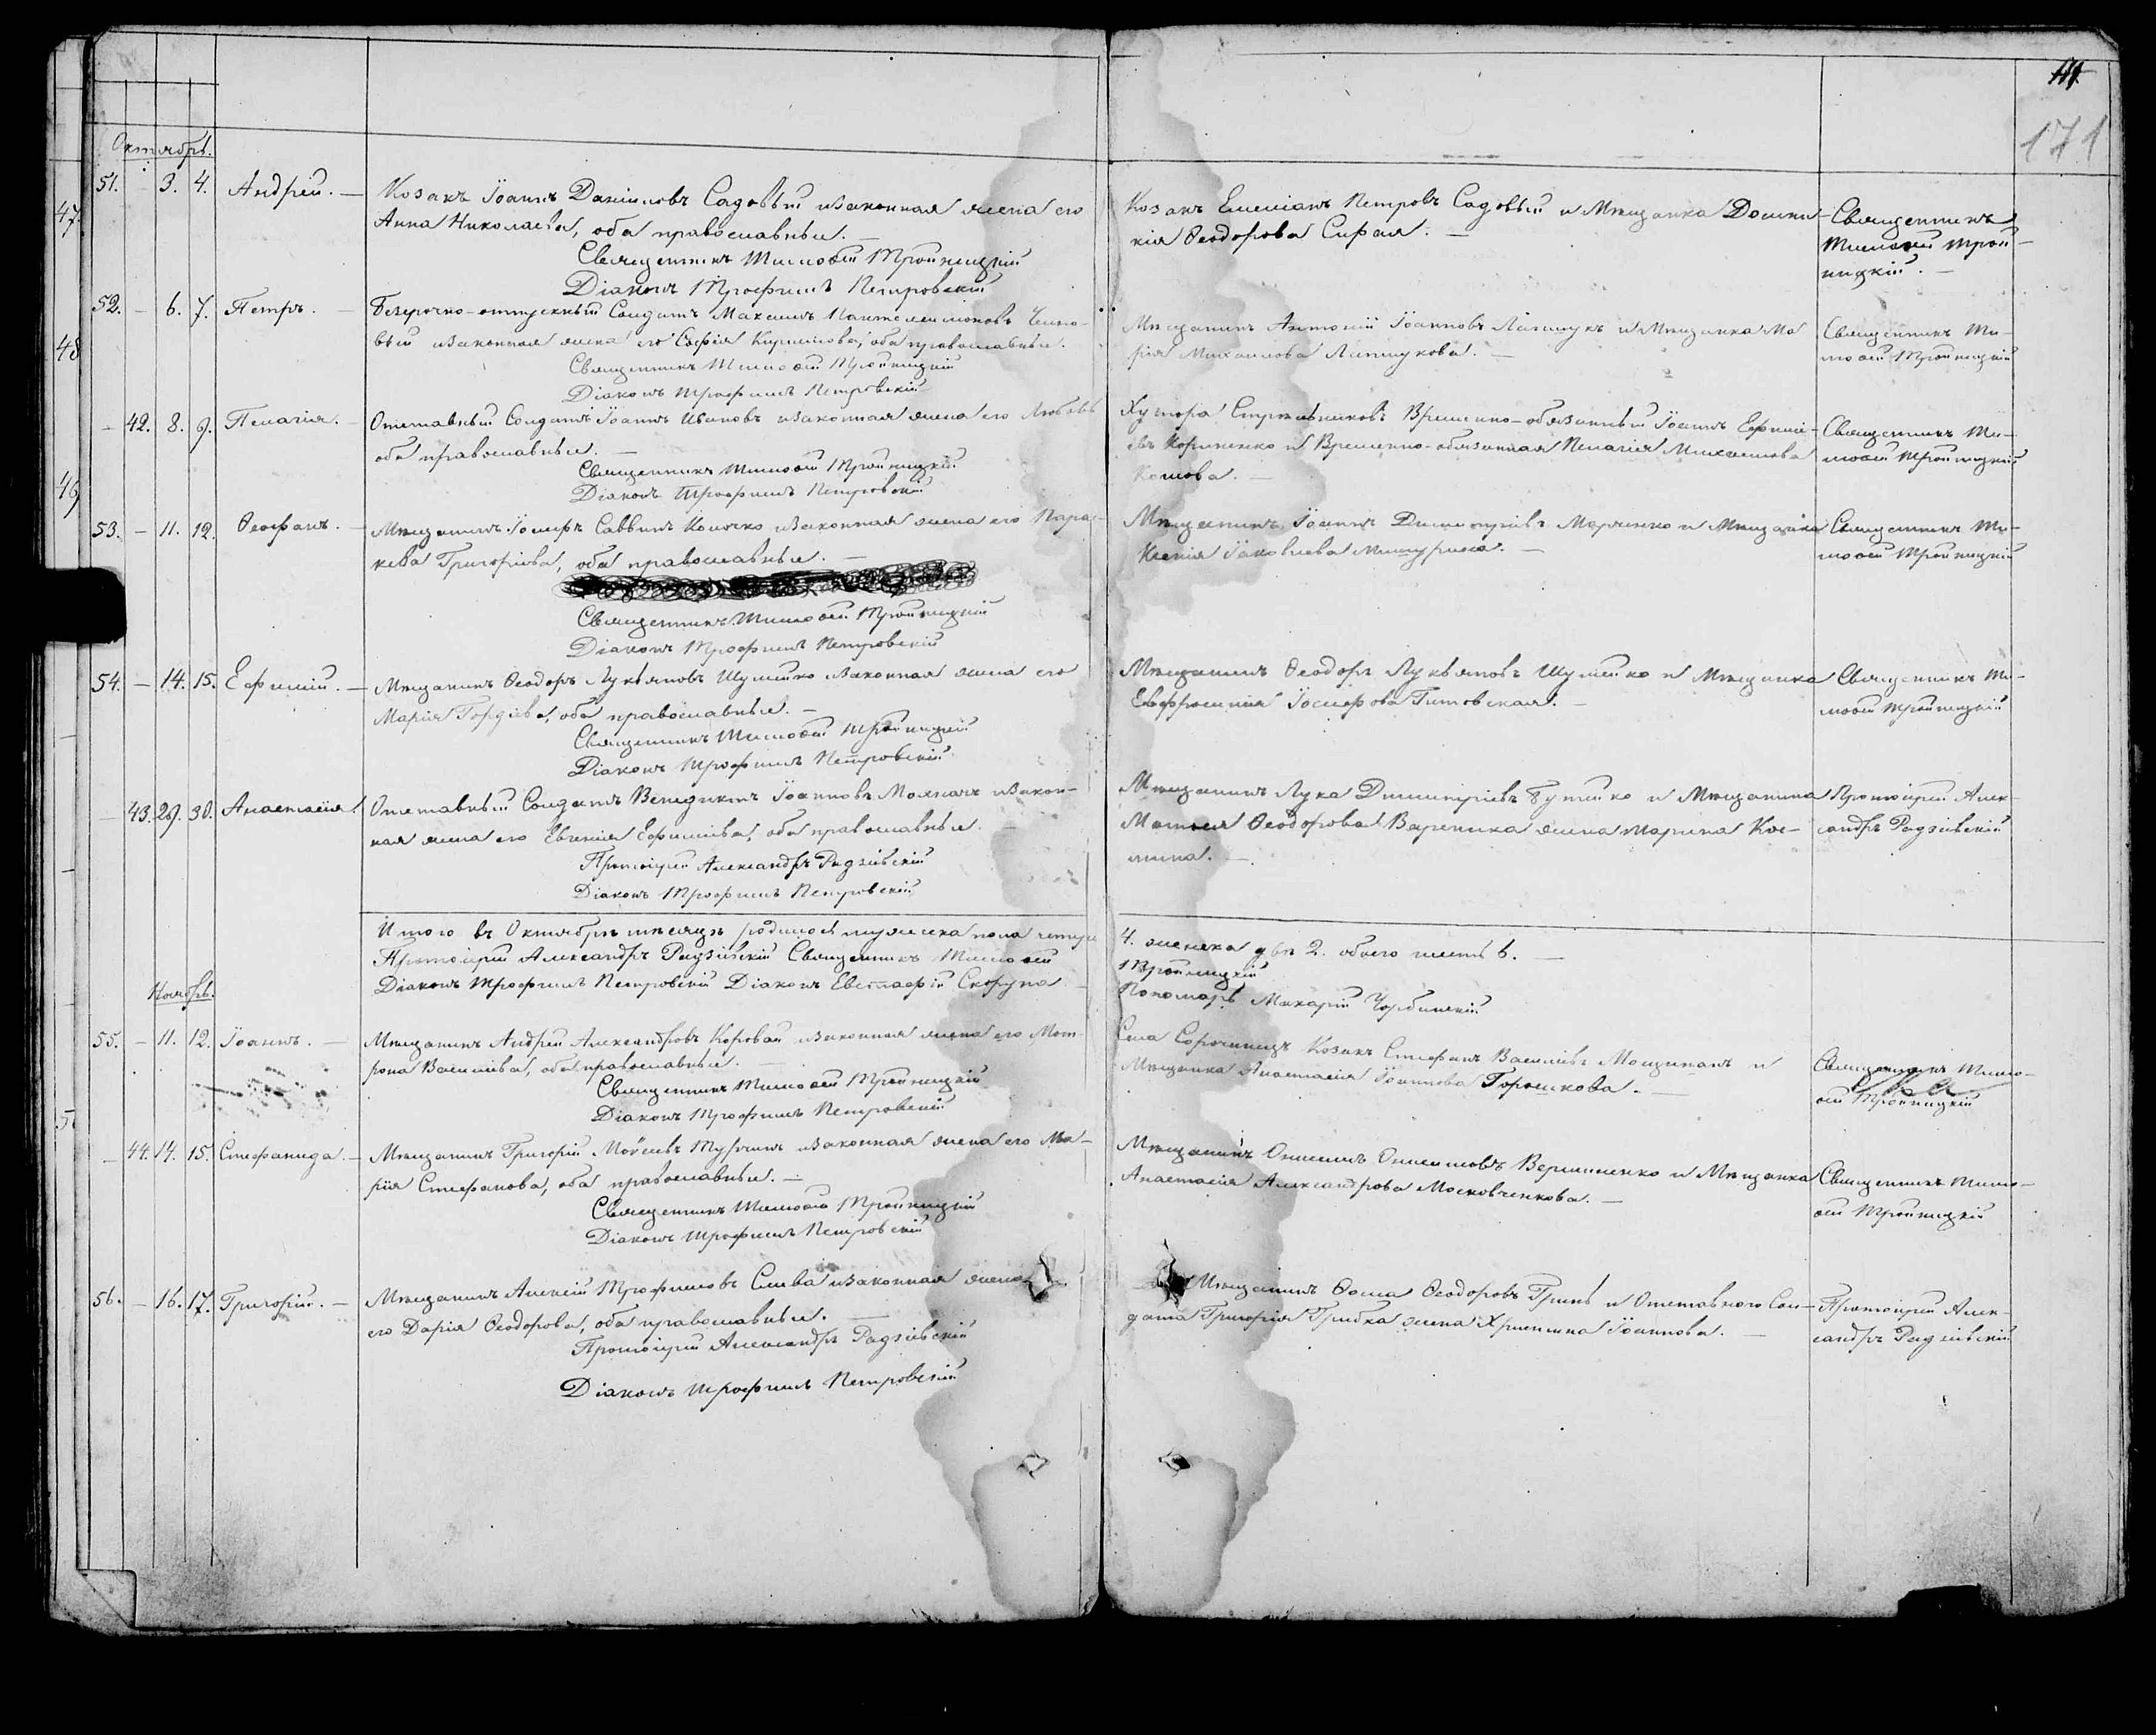 171
Октябрь.
51. – 3. 4. Андрей. – Козакъ Іоаннъ Даніиловъ Садовый изаконная жена его
Анна Николаева, оба православные. –
Священникъ Тимоѳей Тройницкій
Діаконъ Трофимъ Петровскій
Козакъ Емеліанъ Петровъ Садовый и Мѣщанка Домни-
кія Ѳеодорова Сирая. –
Священникъ
Тимоѳей Трой-
ницкій. –
52. – 6. 7. Петръ. – Безсрочно-отпускный Солдатъ Максимъ Пантелеимоновъ
вый изаконная жена его Софія Кириллова, оба православные.
Священникъ Тимоѳей Тройницкій
Діаконъ Трофимъ Петровскій
Мѣщанинъ Антоній Іоанновъ Лапшукъ и Мѣщанка Ма
рія Михаилова Лапшукова. –
Священникъ Ти-
моѳей Тройницкій
– 42. 8. 9. Пелагія. – Отставный Солдатъ Іоаннъ Ивановъ изаконная жена его Любовь
оба православные. –
Священникъ Тимоѳей Тройницкій
Діаконъ Трофимъ Петровскій
Хутора Временно-обязанный Іоаннъ
и Временно-обязанная Пелагія Михаилова
Священникъ Ти-
моѳей Тройницкій
53. – 11. 12. Ѳеофанъ. – Мѣщанинъ Іосифъ Саввинъ Колочко изаконная жена его Парас-
кева Григоріева, оба православные. –
Священникъ Тимоѳей Тройницкій
Діаконъ Трофимъ Петровскій
Мѣщанинъ Іоаннъ Димитріевъ Марченко и Мѣщанка
Ксенія Іаковлева –
Священникъ Ти-
моѳей Тройницкій
54. – 14. 15. Ефимій. – Мѣщанинъ Ѳеодоръ Лукьяновъ Шулейко изаконная жена его
Марія Гордіева, оба православные. –
Священникъ Тимоѳей Тройницкій
Діаконъ Трофимъ Петровскій
Мѣщанинъ Ѳеодоръ Лукьяновъ Шулейко и Мѣщанка
Евфросинія Іосифова Титовская. –
Священникъ Ти-
моѳей Тройницкій
– 43. 29. 30. Анастасія. Отставный Солдатъ Венедиктъ Іоанновъ изакон-
ная жена его Евгенія Ефиміева, оба православные. –
Протоіерей Александръ Радзіевскій
Діаконъ Трофимъ Петровскій
Мѣщанинъ Лука Димитріевъ Бутейко и Мѣщанина
Матѳея Ѳеодорова Вареника жена Марина Кос-
мина. –
Протоіерей Алек-
сандръ Радзіевскій
Итого въ Октябрѣ мѣсяцѣ родилось мужеска пола четыре
4. женска двѣ 2. обоего шесть 6. –
Протоіерей Александръ Радзіевскій Священникъ Тимоѳей
Тройницкій
Діаконъ Трофимъ Петровскій Діаконъ Евстафій Скорупа
Пономарь Макарій Чорбинскій
Ноябрь.
55. – 11. 12. Іоаннъ. – Мѣщанинъ Андрей Александровъ Коровай изаконная жена его Мот-
рона Василіева, оба православные. –
Священникъ Тимоѳей Тройницкій
Діаконъ Трофимъ Петровскій
Села Сорочинецъ Козакъ Стефанъ Василіевъ и
Мѣщанка Анастасія Іоаннова Горошкова. –
Священникъ Тимо-
ѳей Тройницкій
– 44. 14. 15. Стефанида. – Мѣщанинъ Григорій Моѵсеевъ Турчинъ изаконная жена его Ма-
рія Стефанова, оба православные. –
Священникъ Тимоѳей Тройницкій
Діаконъ Трофимъ Петровскій
Мѣщанинъ Онисимъ Онисимовъ и Мѣщанка
Анастасія Александрова Московченкова. –
Священникъ Тимо-
ѳей Тройницкій
56. – 16. 17. Григорій. – Мѣщанинъ Алексій Трофимовъ Слива изаконная жена
его Дарія Ѳеодорова, оба православные. –
Протоіерей Александръ Радзіевскій
Діаконъ Трофимъ Петровскій
Мѣщанинъ Ѳома Ѳеодоровъ Гринь и Отставного Сол-
дата Григорія Грибка жена Христина Іоаннова. –
Протоіерей Алек-
сандръ Радзіевскій